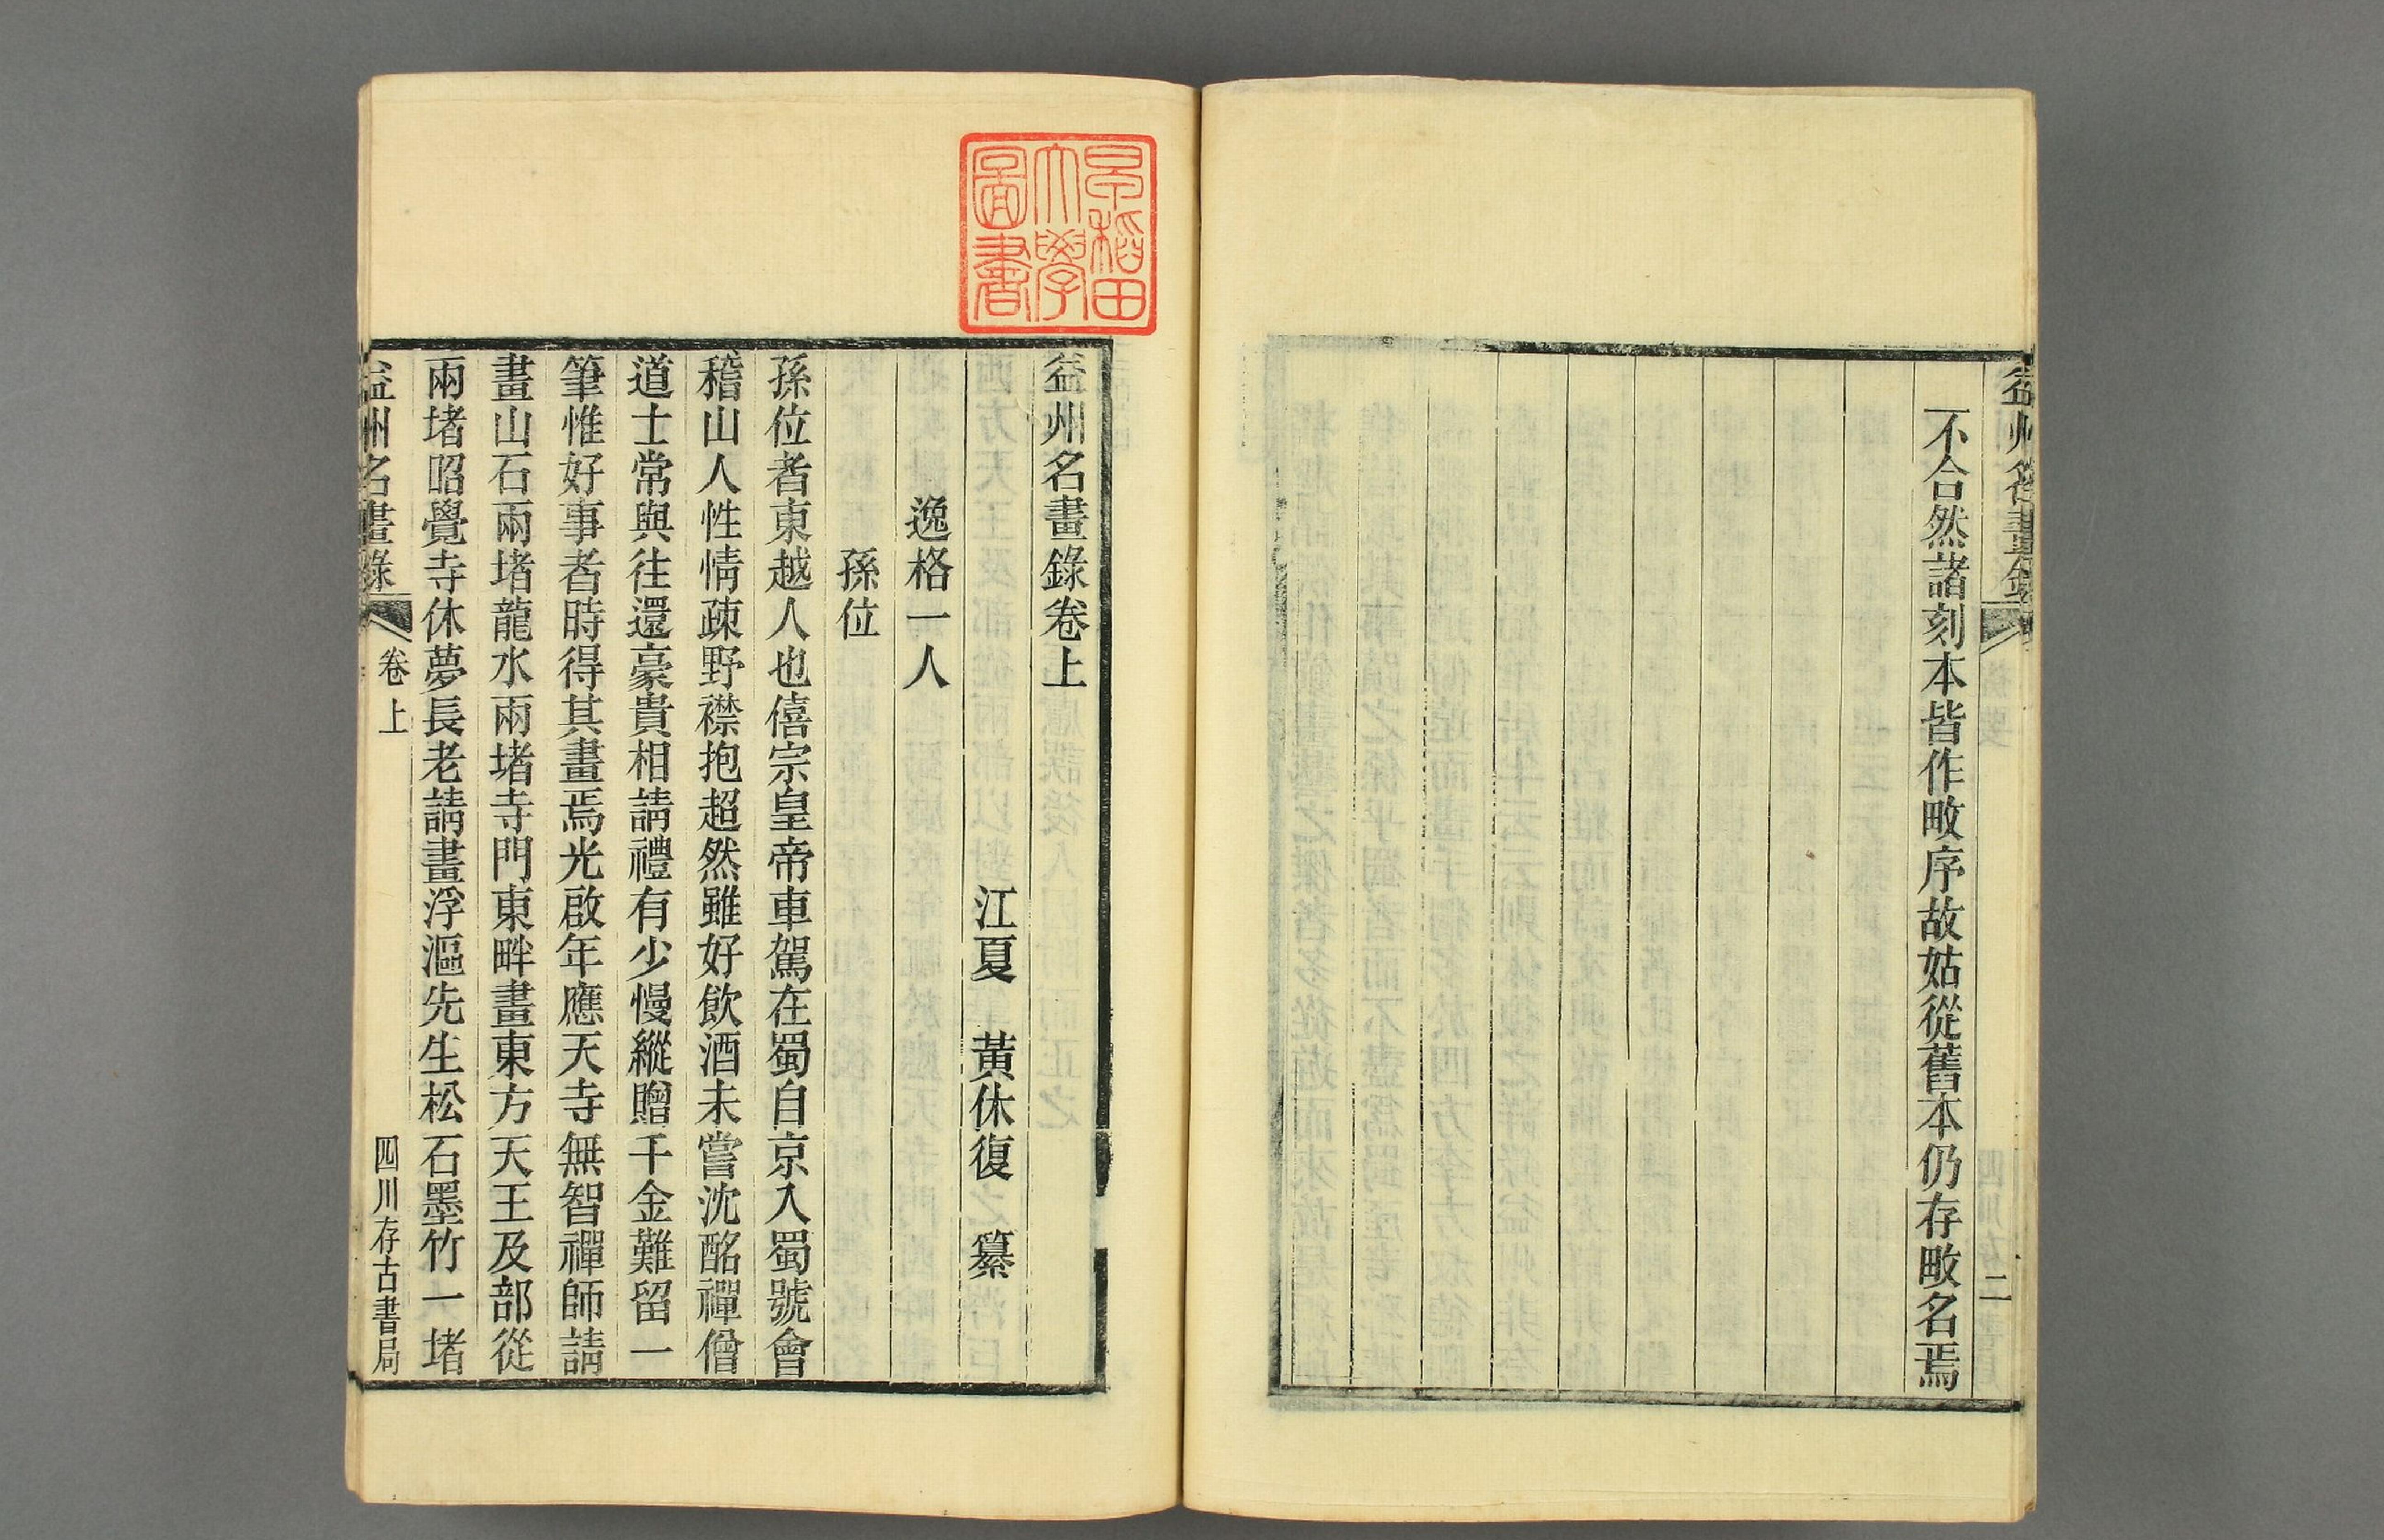 益州名畫錄
二
不合然諸刻本皆作畋序故姑從舊本仍存畋名焉
早稻田
大學
圖書
益州名畫錄卷上
江夏 黃休復 纂
逸格一人
孫位
孫位者東越人也僖宗皇帝車駕在蜀自京入蜀號會
稽山人性情疎野襟抱超然雖好飲酒未嘗沈酩禪僧
道士常與往還豪貴相請禮有少慢縱贈千金難留一
筆惟好事者時得其畫焉光啟年應天寺無智禪師請
畫山石兩堵龍水兩堵寺門東畔畫東方天王及部從
兩堵昭覺寺休夢長老請畫浮漚先生松石墨竹一堵
益州名畫錄 卷上 四川存古書局